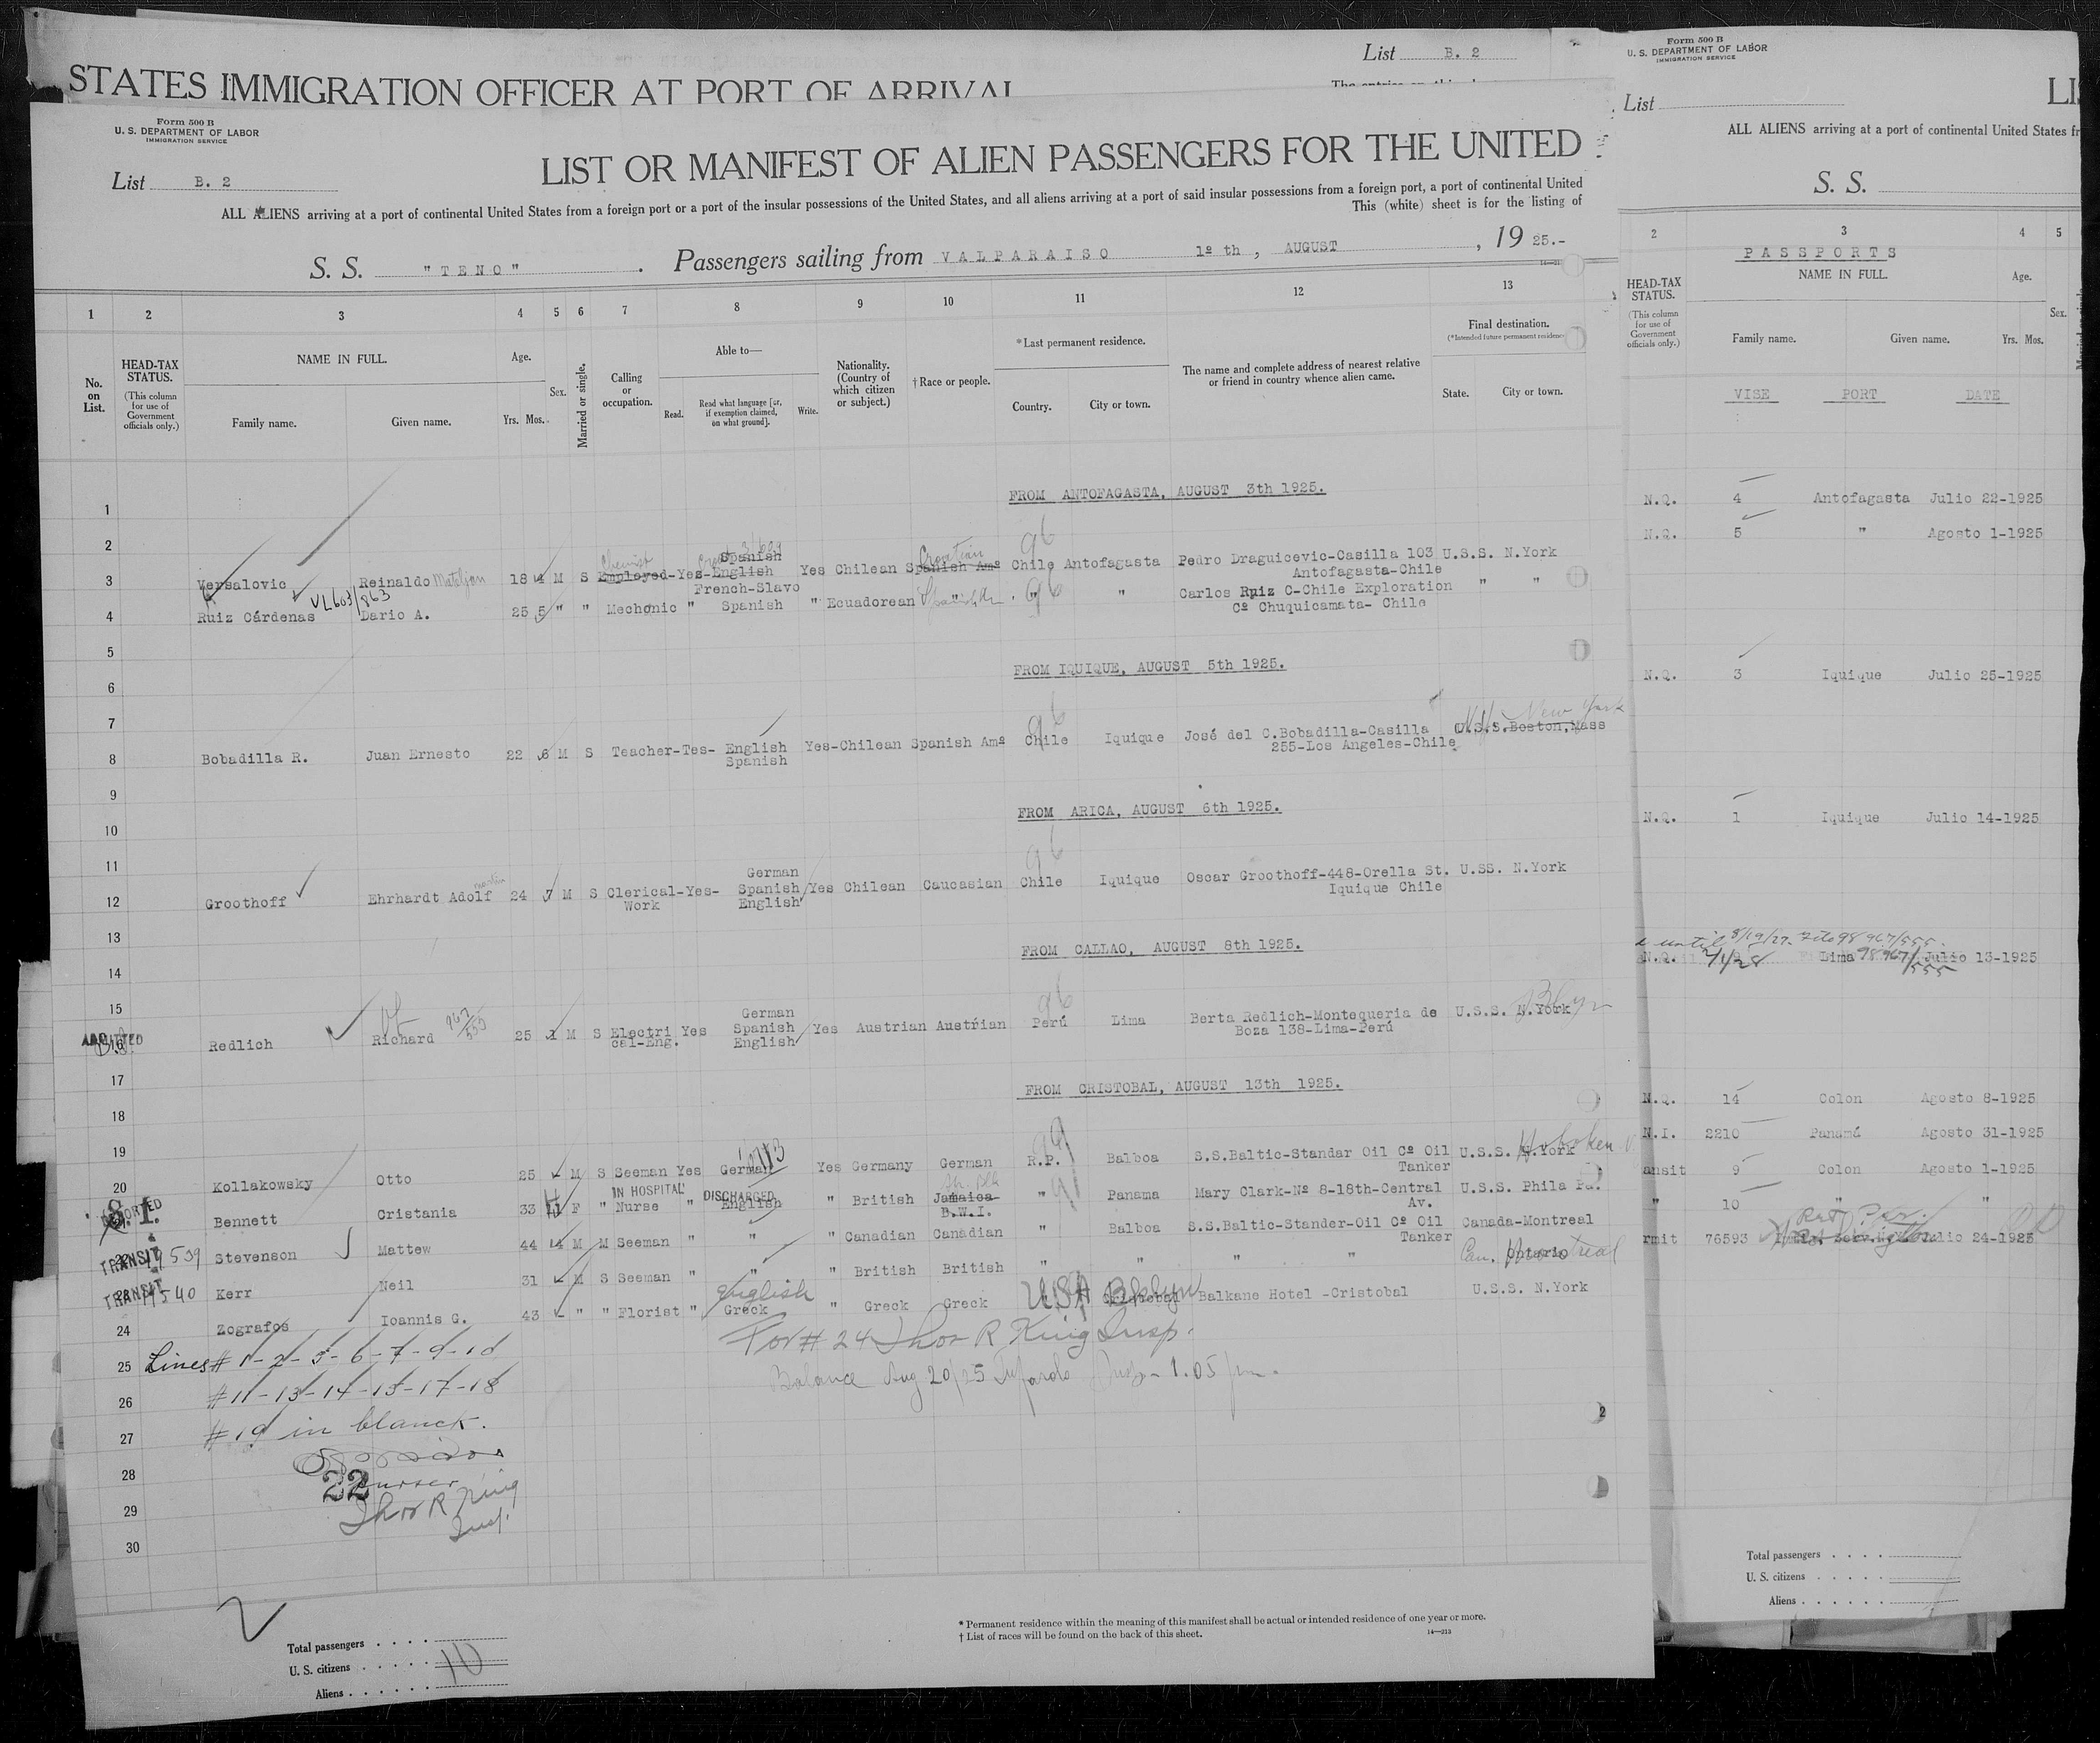 List B. 2
STATES IMMIGRATION OFFICER AT PORT OF ARRIVAL
Form 500 B
U. S. DEPARTMENT OF LABOR
IMMIGRATION SERVICE
List B. 2
LIST OR MANIFEST OF ALIEN PASSENGERS FOR THE UNITED
ALL ALIENS arriving at a port of continental United States from a foreign port or a port of the insular possessions of the United States, and all aliens arriving at a port of said insular possessions from a foreign port, a port of continental United
This (white) sheet is for the listing of
S. S. "TENO" . Passengers sailing from VALPARAISO 1º th , AUGUST , 19 25.-
1 2 3 4 5 6 7 8 9 10 11 12 13
No. on List.
HEAD-TAX STATUS.
(This column for use of Government officials only.)
NAME IN FULL.
Family name. Given name.
Age.
Yrs. Mos.
Sex.
Married or single.
Calling or occupation.
Able to—
Read. Read what language [or, if exemption claimed, on what ground]. Write.
Nationality. (Country of which citizen or subject.)
† Race or people.
*Last permanent residence.
Country. City or town.
The name and complete address of nearest relative or friend in country whence alien came.
Final destination.
(*Intended future permanent residence)
State. City or town.
1 FROM ANTOFAGASTA, AUGUST 3th 1925.
2
96
Chemist Spanish Croatian
3 Versalovic Reinaldo 18 4 M S Employed-Yes-English Yes Chilean Spanish Amª Chile Antofagasta Pedro Draguicevic-Casilla 103 U.S.S. N.York
French-Slavo Antofagasta-Chile
VL603/863
4 Ruiz Cárdenas Dario A. 25 5 " " Mechonic " Spanish " Ecuadorean " " " Carlos Ruiz C-Chile Exploration " "
Cº Chuquicamata- Chile
5 FROM IQUIQUE, AUGUST 5th 1925.
6
7 96 New York
8 Bobadilla R. Juan Ernesto 22 6 M S Teacher-Tes- English Yes-Chilean Spanish Amª Chile Iquique José del C.Bobadilla-Casilla U.S.S.Boston,Mass
Spanish 255-Los Angeles-Chile
9 FROM ARICA, AUGUST 6th 1925.
10
11 96
German
12 Groothoff Ehrhardt Adolf 24 7 M S Clerical-Yes- Spanish Yes Chilean Caucasian Chile Iquique Oscar Groothoff-448-Orella St. U.SS. N.York
Work English Iquique Chile
13 FROM CALLAO, AUGUST 8th 1925.
14
15 96
German
ADMITTED Redlich Richard 967/555 25 1 M S Electri Yes Spanish Yes Austrian Austrian Perú Lima Berta Redlich-Montequeria de U.S.S. N.York Bklyn
cal-Eng. English Boza 138-Lima-Perú
17 FROM CRISTOBAL, AUGUST 13th 1925.
18
19
20 Kollakowsky Otto 25 M S Seeman Yes German Yes Germany German R.P. Balboa S.S.Baltic-Standar Oil Cº Oil U.S.S. N.York Hoboken
Tanker
IN HOSPITAL DISCHARGED
S.I. Bennett Cristania 33 F " Nurse " English " British Jamaica " Panama Mary Clark-Nº 8-18th-Central U.S.S. Phila Pa.
B.W.I. Av.
TRANSIT Stevenson Mattew 44 4 M M Seeman " " " Canadian Canadian " Balboa S.S.Baltic-Stander-Oil Cº Oil Canada-Montreal
Tanker
TRANSIT Kerr Neil 31 M S Seeman " " " British British " " " " Can. Ontario Montreal
English USA Bklyn
24 Zografos Ioannis G. 43 " " Florist " Greck " Greck Greck Cristobal Balkane Hotel -Cristobal U.S.S. N.York
For # 24 Thos R King Insp.
25 Lines # 1-2-5-6-7-9-10
Balance Aug 20/25 Insp - 1.05 pm.
26 # 11-13-14-15-17-18
27 # 19 in blanck.
28
22 Purser
29 Thos R King
Insp.
30
Total passengers
U. S. citizens 10
Aliens
* Permanent residence within the meaning of this manifest shall be actual or intended residence of one year or more.
† List of races will be found on the back of this sheet.
14—213
Form 500 B
U. S. DEPARTMENT OF LABOR
IMMIGRATION SERVICE
List
LI
ALL ALIENS arriving at a port of continental United States fr
S. S.
2 3 4 5
PASSPORTS
HEAD-TAX STATUS.
(This column for use of Government officials only.)
NAME IN FULL.
Family name. Given name.
Age.
Yrs. Mos.
Sex.
VISE PORT DATE
N.Q. 4 Antofagasta Julio 22-1925
N.Q. 5 " Agosto 1-1925
N.Q. 3 Iquique Julio 25-1925
N.Q. 1 Iquique Julio 14-1925
until 8/19/27. File 98967/555.
N.Q. 2/1/28 Lima 98967/555 Julio 13-1925
N.Q. 14 Colon Agosto 8-1925
N.I. 2210 Panamá Agosto 31-1925
ansit 9 Colon Agosto 1-1925
" 10 " "
rmit 76593 Julio 24-1925
Total passengers
U. S. citizens
Aliens